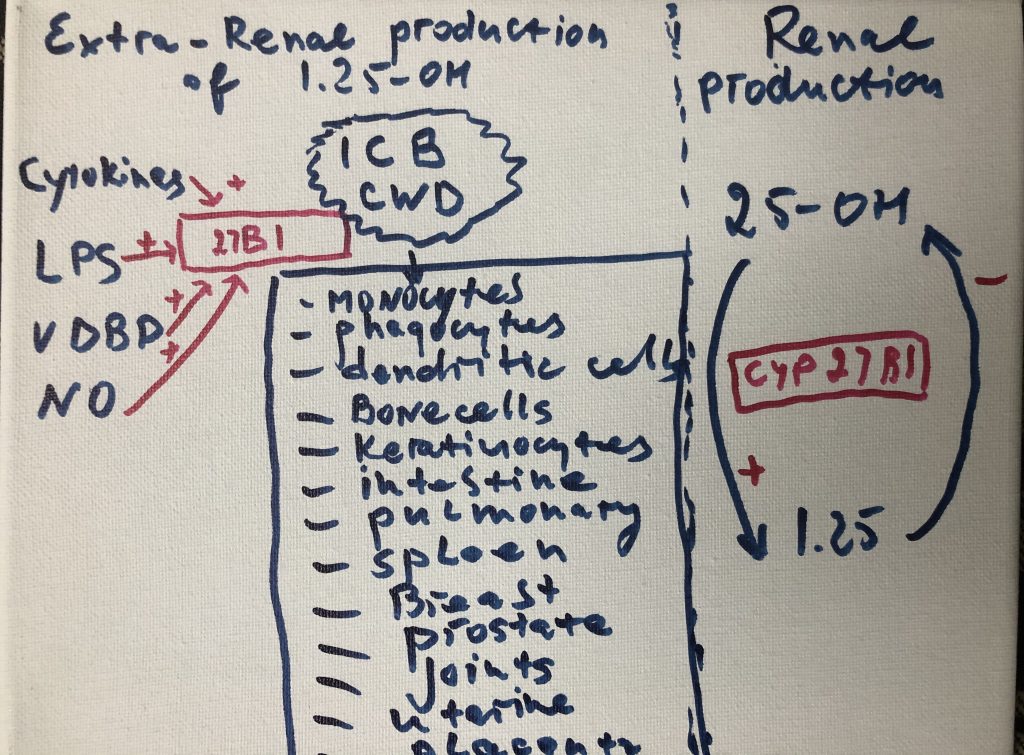 Extra-Renal production
of 1.25-OH
Cytokines +
LPS +
VDBD +
NO +
27B1
ICB
CWD
- Monocytes
- phagocytes
- dendritic cells
- Bone cells
- Keratinocytes
- intestine
- pulmonary
- spleen
- Breast
- prostate
- Joints
- uterine
placenta
Renal
production
25-OH
-
CYP27B1
+
1.25